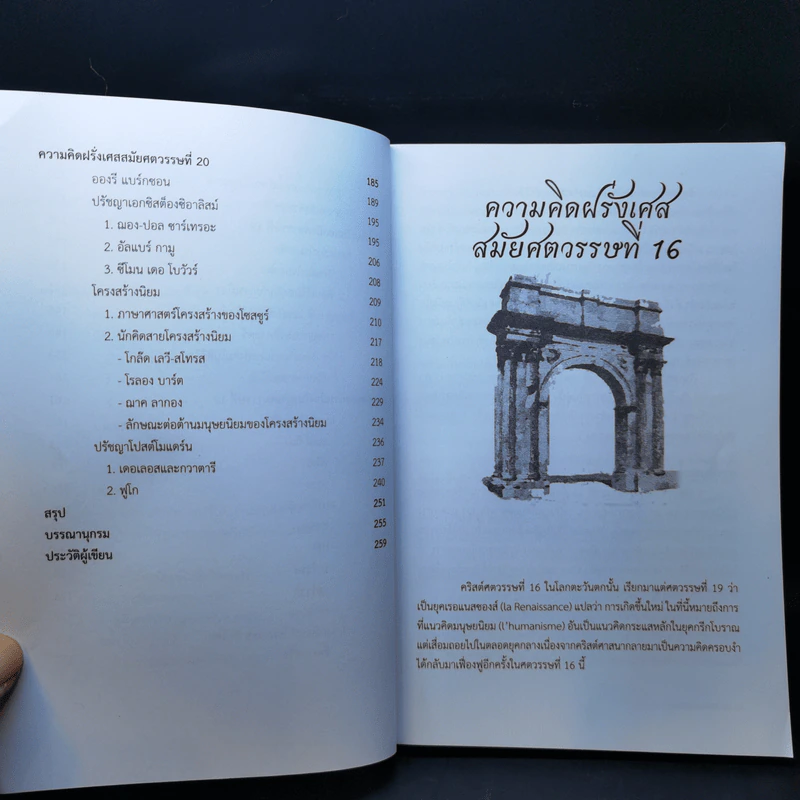 ความคิดฝรั่งเศสสมัยศตวรรษที่ 20
อองรี แบร์กซอน 185
ปรัชญาเอกซิสต็องซิอาลิสม์ 189
1. ฌอง-ปอล ซาร์เทรอะ 195
2. อัลแบร์ กามู 195
3. ซีโมน เดอ โบวัวร์ 206
โครงสร้างนิยม 208
1. ภาษาศาสตร์โครงสร้างของโซสซูร์ 209
2. นักคิดสายโครงสร้างนิยม 210
- โกล๊ด เลวี-สโทรส 217
- โรลอง บาร์ต 218
- ฌาค ลากอง 224
- ลักษณะต่อต้านมนุษยนิยมของโครงสร้างนิยม 229
ปรัชญาโปสต์โมแดร์น 234
1. เดอเลอสและกวาตารี 236
2. ฟูโก 237
240
สรุป 251
บรรณานุกรม 255
ประวัติผู้เขียน 259
ความคิดฝรั่งเศส
สมัยศตวรรษที่ 16
คริสต์ศตวรรษที่ 16 ในโลกตะวันตกนั้น เรียกมาแต่ศตวรรษที่ 19 ว่า
เป็นยุคเรอแนสซองส์ (la Renaissance) แปลว่า การเกิดขึ้นใหม่ ในที่นี้หมายถึงการ
ที่แนวคิดมนุษยนิยม (l'humanisme) อันเป็นแนวคิดกระแสหลักในยุคกรีกโบราณ
แต่เสื่อมถอยไปในตลอดยุคกลางเนื่องจากคริสต์ศาสนากลายมาเป็นความคิดครอบงำ
ได้กลับมาเฟื่องฟูอีกครั้งในศตวรรษที่ 16 นี้